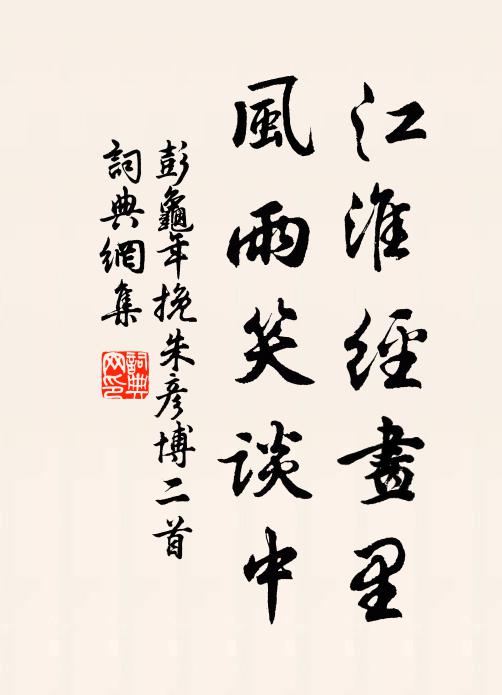 江淮經畫里
風雨笑談中
彭龜年挽朱彥博二首
詞典網集
詞典
网印